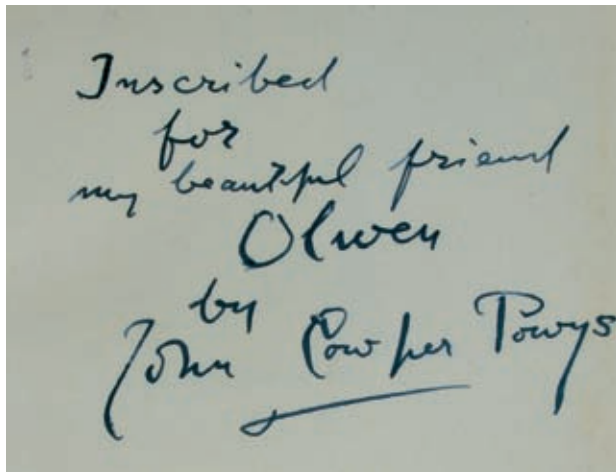 Inscribed
for
my beautiful friend
Olwen
by
John Cowper Powys